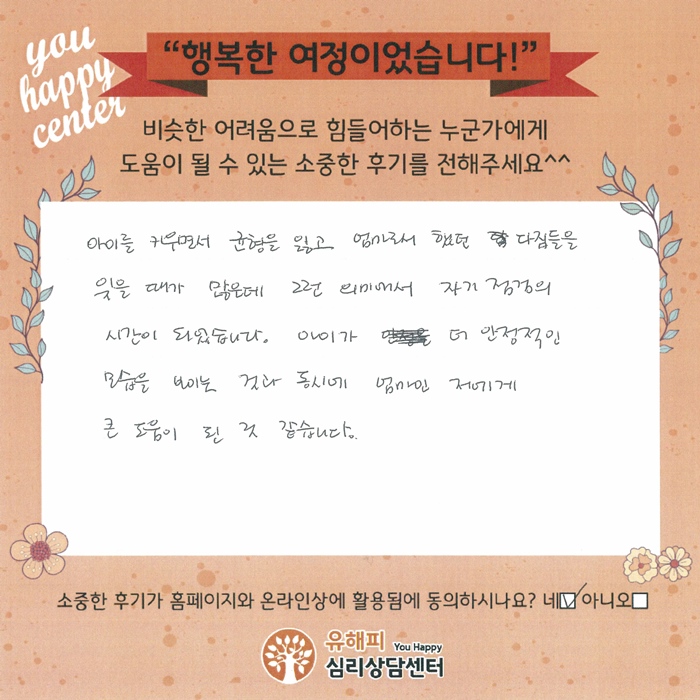 you
happy
center
“행복한 여정이었습니다!”
비슷한 어려움으로 힘들어하는 누군가에게
도움이 될 수 있는 소중한 후기를 전해주세요^^
아이를 키우면서 균형을 잃고 엄마로서 했던 다짐들을
잊을 때가 많은데 그런 의미에서 자기 점검의
시간이 되었습니다. 아이가 더 안정적인
모습을 보이는 것과 동시에 엄마인 저에게
큰 도움이 된 것 같습니다.
소중한 후기가 홈페이지와 온라인상에 활용됨에 동의하시나요? 네 아니오
유해피 You Happy
심리상담센터